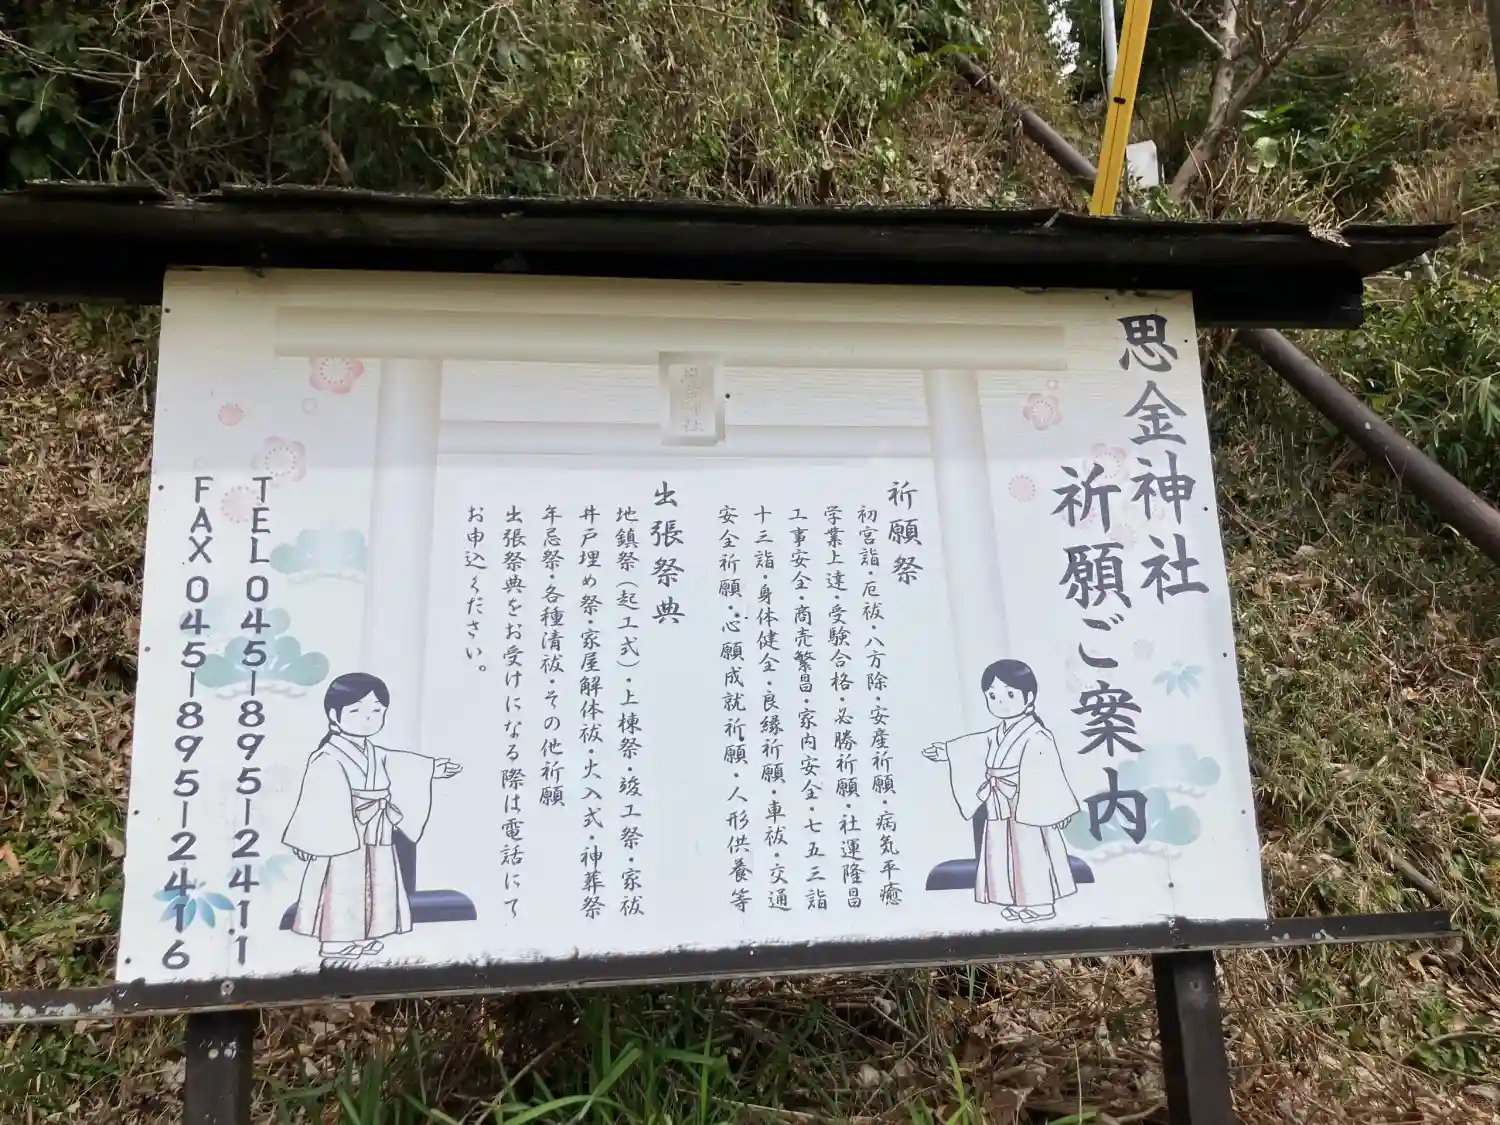 思金神社
祈願ご案内
祈願祭
初宮詣・厄祓・八方除・安産祈願・病気平癒
学業上達・受験合格・必勝祈願・社運隆昌
工事安全・商売繁昌・家内安全・七五三詣
十三詣・身体健全・良縁祈願・車祓・交通
安全祈願・心願成就祈願・人形供養等
出張祭典
地鎮祭（起工式）・上棟祭・竣工祭・家祓
井戸埋め祭・家屋解体祓・火入式・神葬祭
年忌祭・各種清祓・その他祈願
出張祭典をお受けになる際は電話にて
お申込ください。
TEL045-895-2411
FAX045-895-2416